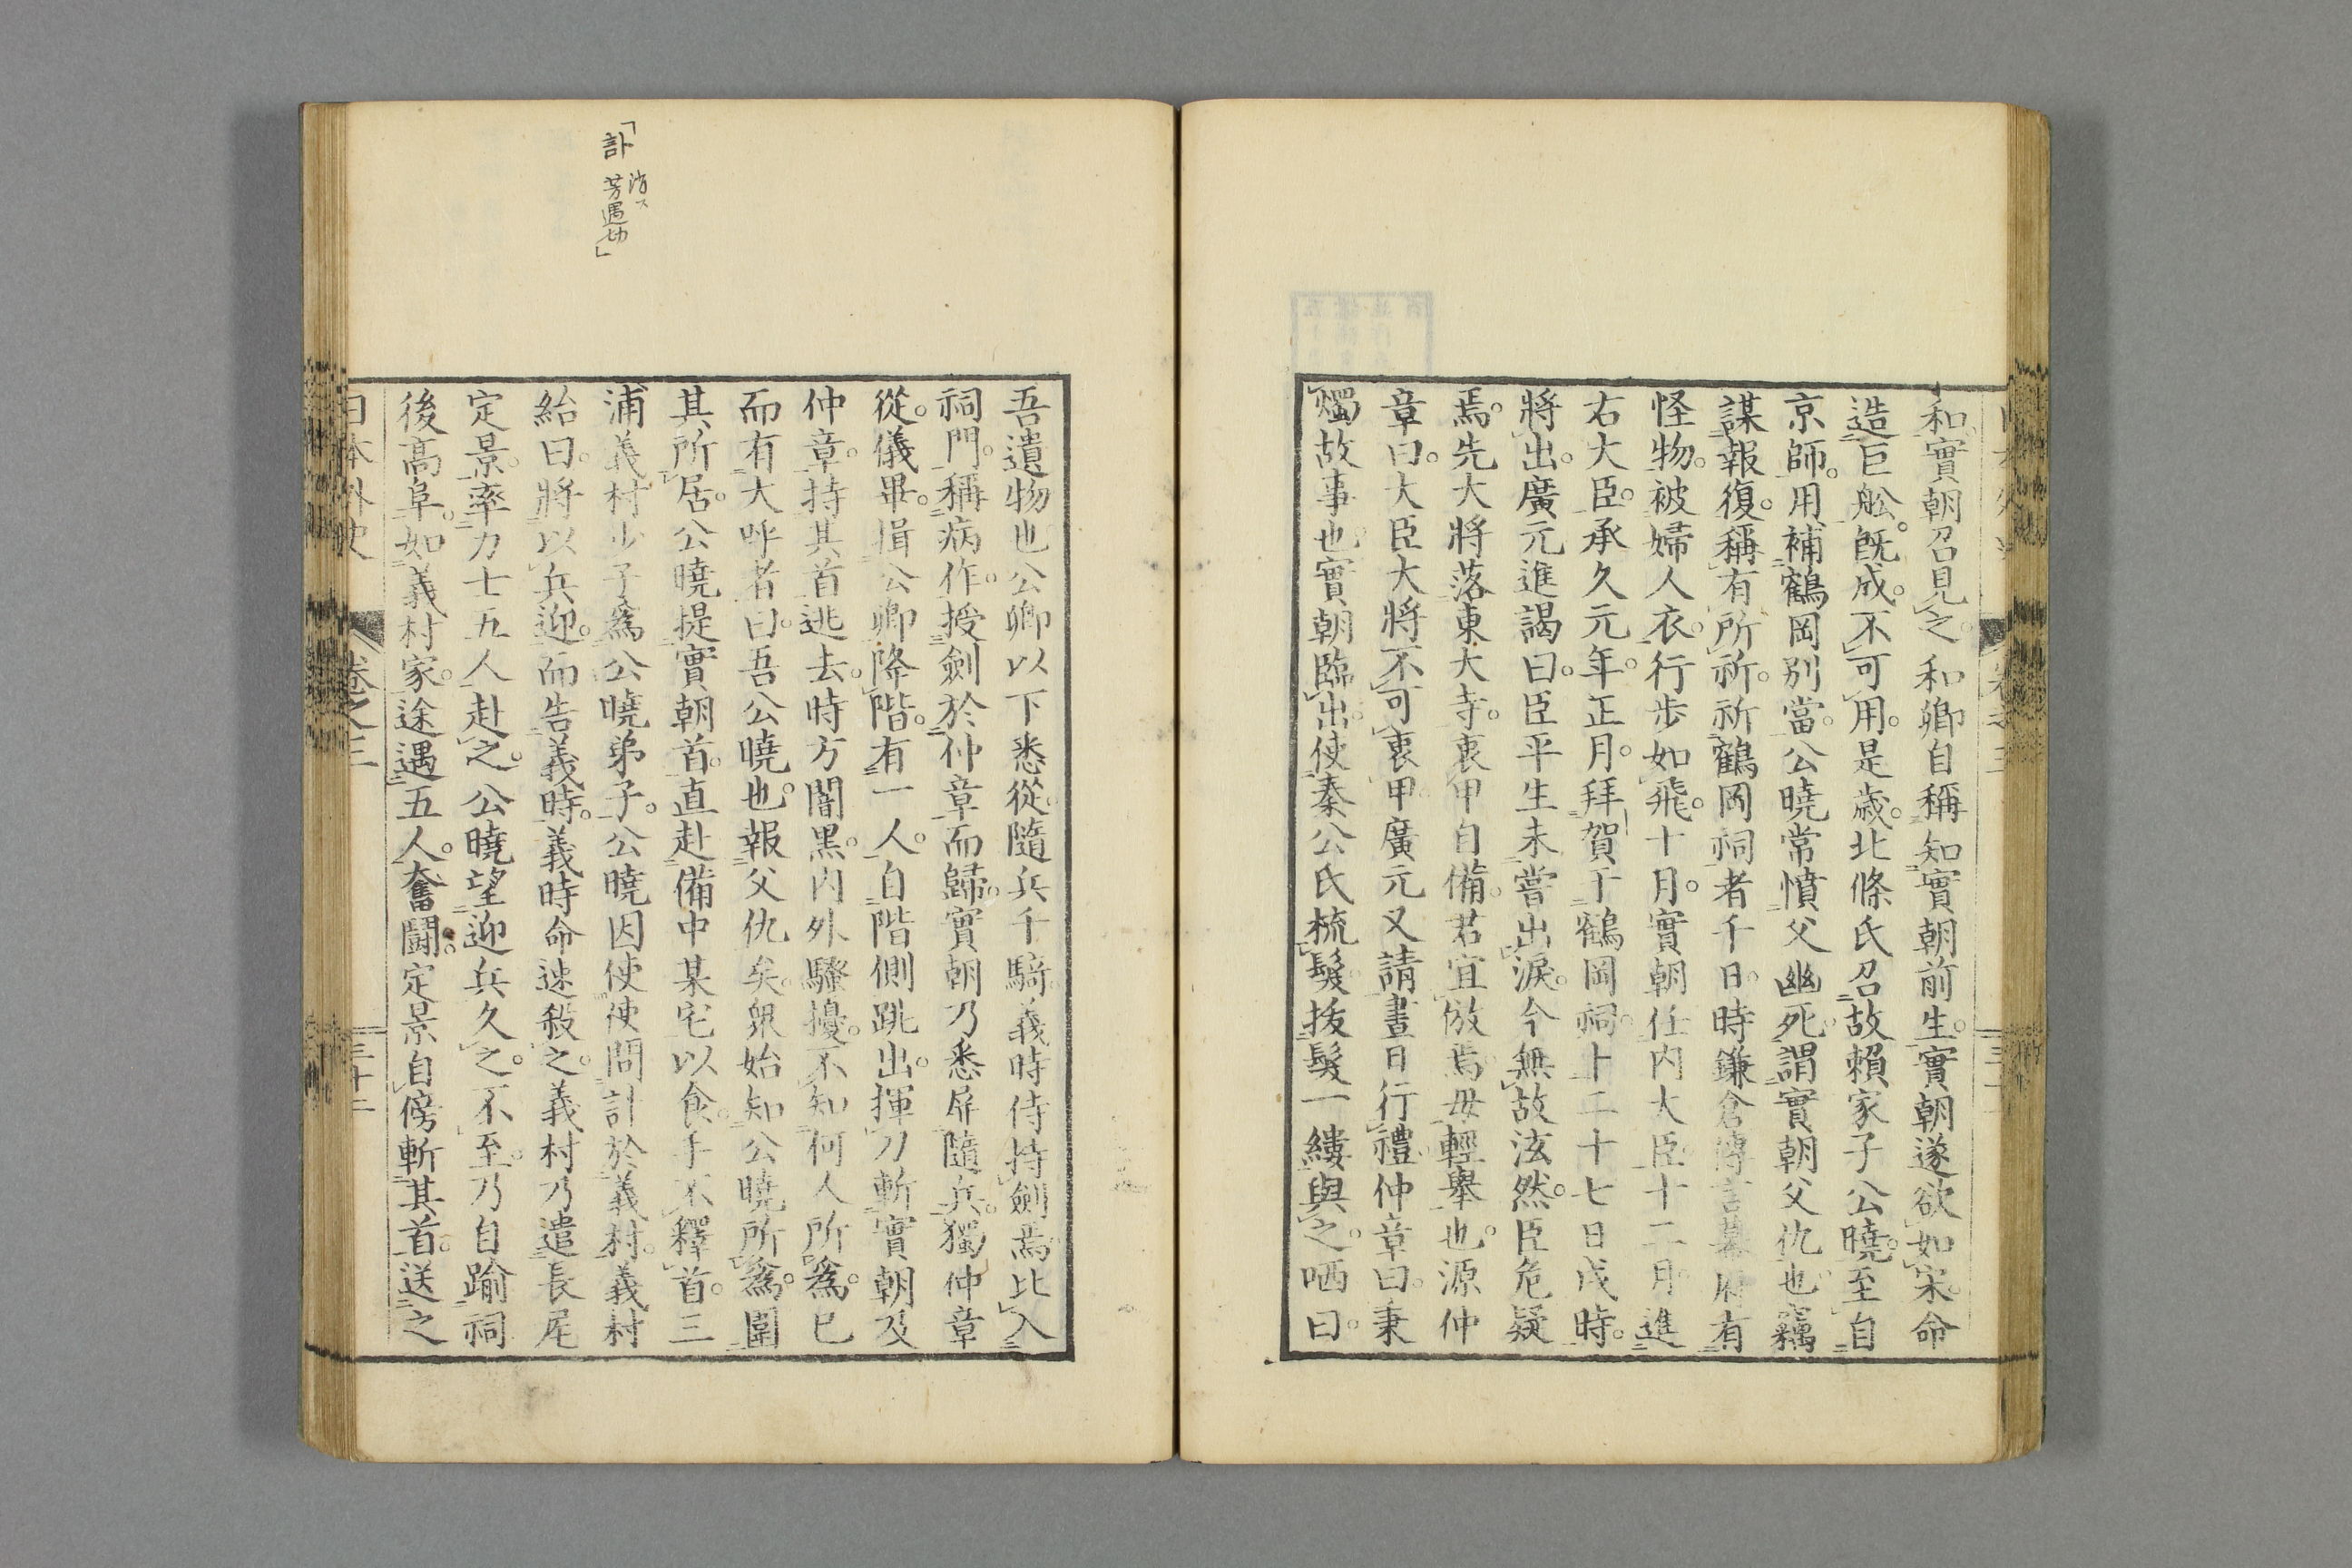 和實朝召見之和卿自稱知實朝前生實朝遂欲如宋命
造巨舩旣成不可用是歲北條氏召故賴家子公曉至自
京師用補鶴岡別當公曉常憤父幽死謂實朝父仇也竊
謀報復稱有所祈祈鶴岡祠者千日時鎌倉傳言幕府有
怪物被婦人衣行步如飛十月實朝任內大臣十二月進
右大臣承久元年正月拜賀于鶴岡祠十二十七日戌時
將出廣元進謁曰臣平生未嘗出淚今無故泫然臣危疑
焉先大將落東大寺衷甲自備君宜倣焉毋輕擧也源仲
章曰大臣大將不可衷甲廣元又請晝日行禮仲章曰秉
燭故事也實朝臨出使秦公氏梳髮拔髮一縷與之哂曰
吾遺物也公卿以下悉從隨兵千騎義時侍持劍焉比入
祠門稱病作授劍於仲章而歸實朝乃悉屏隨兵獨仲章
從儀畢揖公卿降階有一人自階側跳出揮刀斬實朝及
仲章持其首逃去時方闇黑內外騷擾不知何人所爲已
而有大呼者曰吾公曉也報父仇矣衆始知公曉所爲圍
其所居公曉提實朝首直赴備中某宅以食手不釋首三
浦義村少子爲公曉弟子公曉因使使問計於義村義村
紿曰將以兵迎而告義時義時命速殺之義村乃遣長尾
定景率力士五人赴之公曉望迎兵久之不至乃自踰祠
後高阜如義村家途遇五人奮鬪定景自傍斬其首送之
日本外史 卷之三 三十二
「訃
芳遇切」